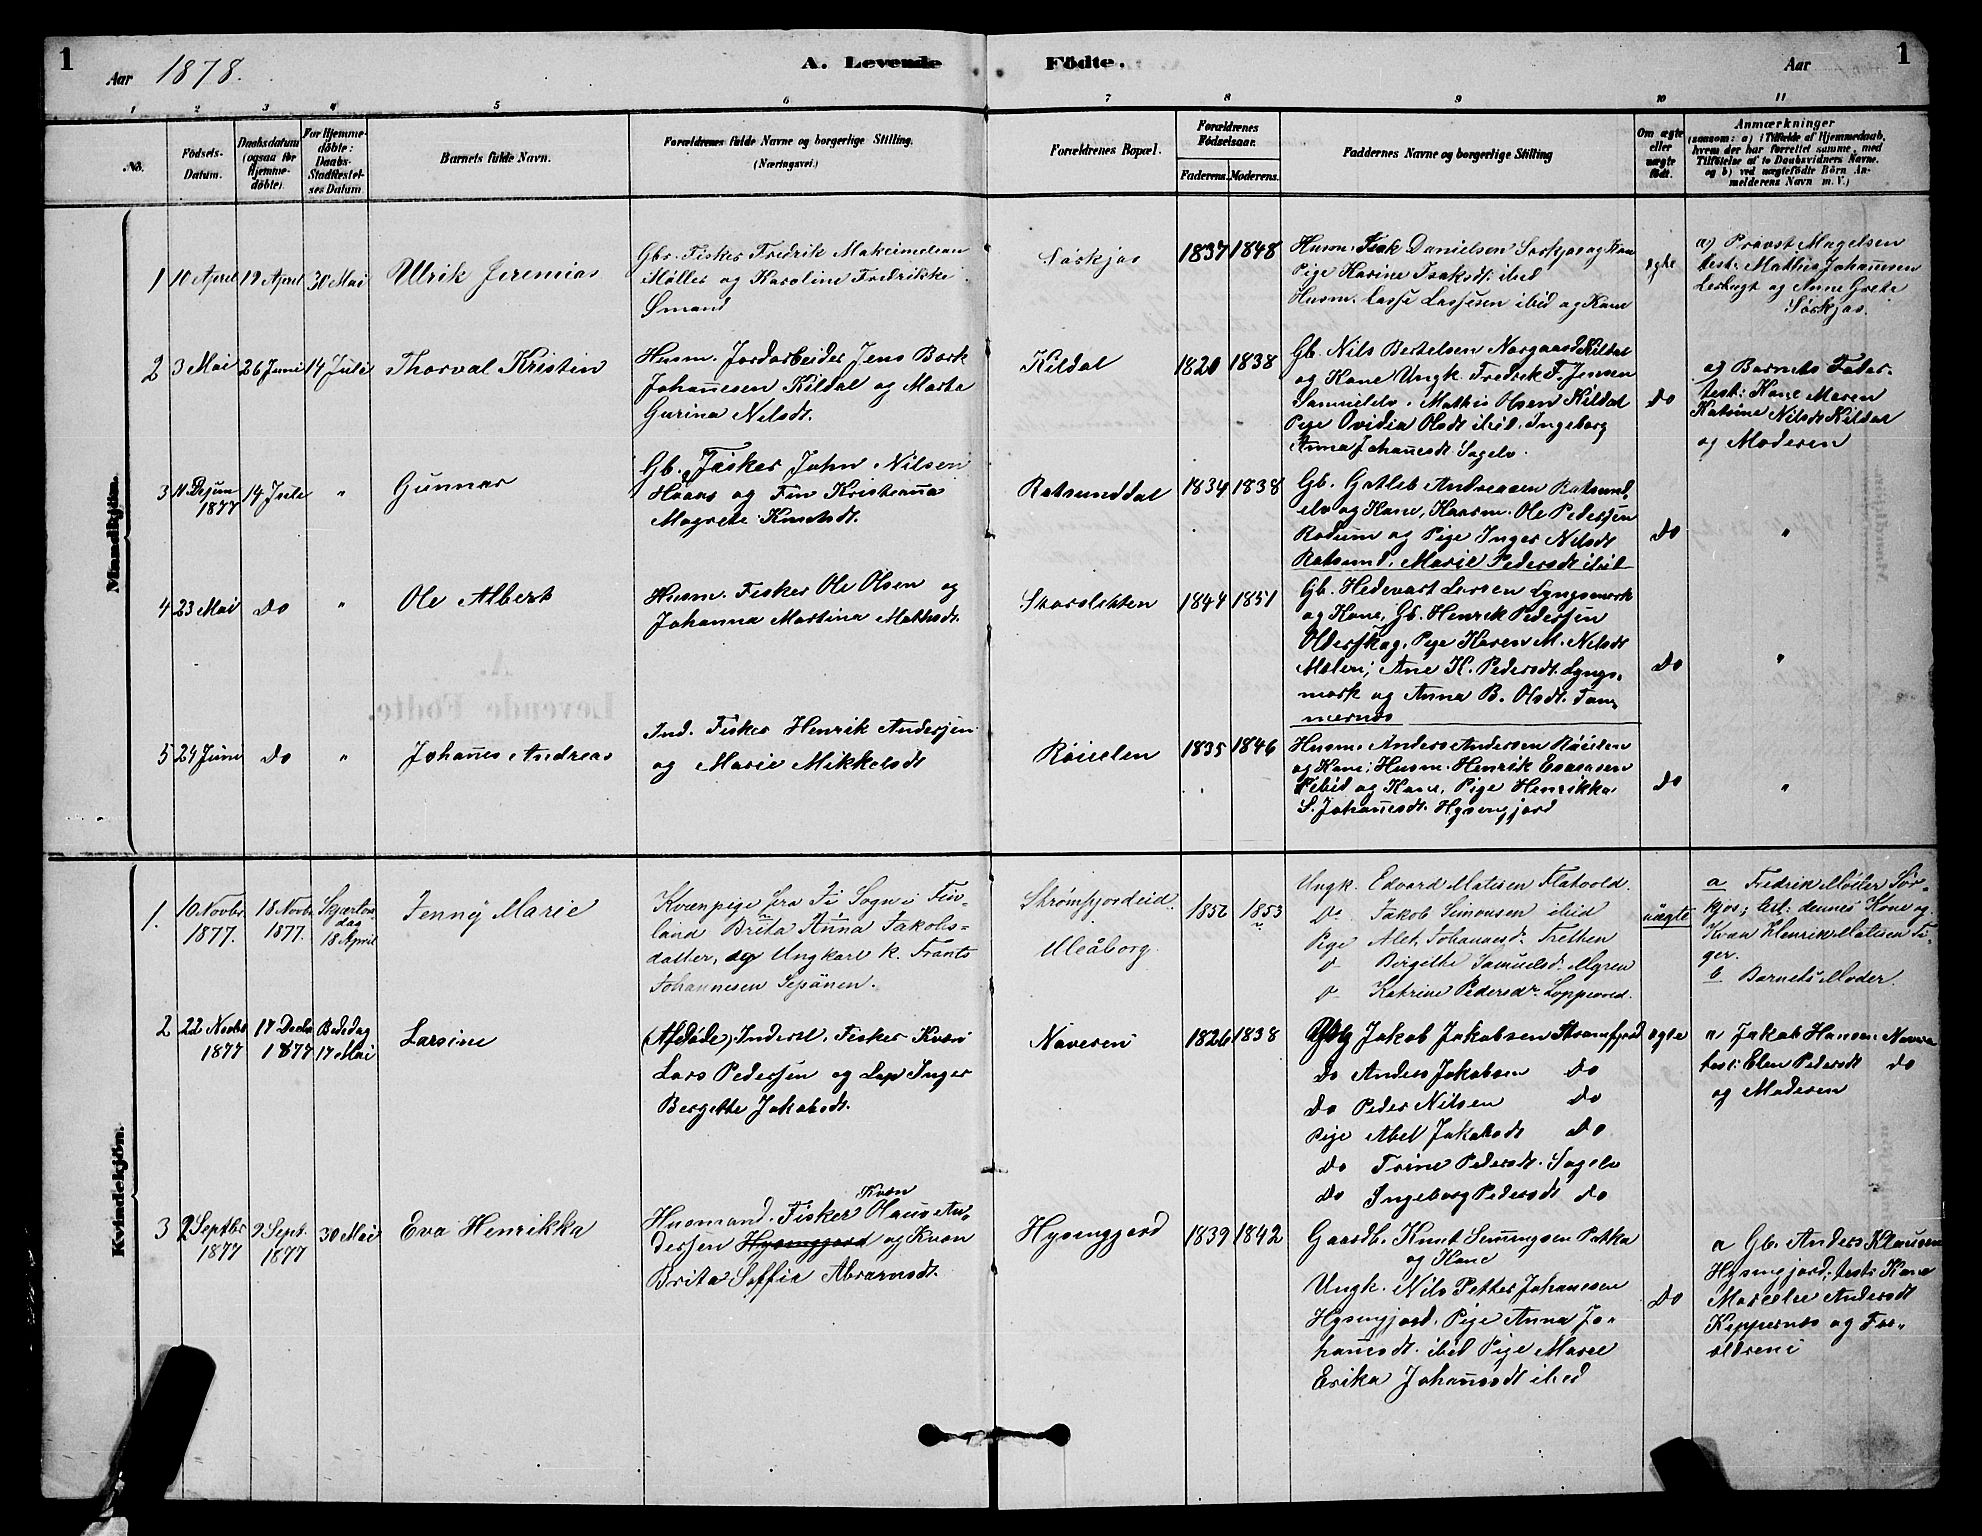 1
Aar 1878.
A. Levende Födte.
Aar
1
1 2 3 4 5 6 7 8 9 10 11
No.
Födsels-Datum.
Daabsdatum (ogsaa for Hjemmedöbte).
For Hjemmedöbte: Daabs-Stadfæstelses Datum
Barnets fulde Navn.
Forældrenes fulde Navne og borgerlige Stilling.
(Næringsvei.)
Forældrenes Bopæl.
Forældrenes Födselsaar.
Faderens. Moderens.
Faddernes Navne og borgerlige Stilling
Om ægte eller uægte födt.
Anmærkninger
(saasom: a) i Tilfælde af Hjemmedaab,
hvem der har forrettet samme, med
Tilföielse af to Daabsvidners Navne.
og b) ved uægtefödte Börn An-
melderens Navn m. V.)
Mandkjön.
1 10 April 19 April 30 Mai
Ulrik Jeremias
Gbr. Fisker Fredrik Maksimelian
Møller og Karoline Fredrikke
Ømand
Sørkjos
1837 1848
Husm. Isak Danielsen Sørkjos og Kone
Pige Karine Isaksdt. ibid
Husm. Lasse Lassesen ibid og Kone
ægte
a) Provst Magelsen
test: Mathis Johannesen
og Anne Grete
Sørkjos.
2 3 Mai 26 Juni 14 Juli
Thorval Kristin
Husm. Jordarbeider Jens Bork
Johanesen Kildal og Marta
Gurina Nelsdt.
Kildal
1820 1838
Gb. Nils Bertelsen Norgaard Kildal
og Kone Ungk. Fredrik F. Jensen
Samuelelv. Mathis Olsen Kildal
Pige Ovidia Olsdt ibid. Ingeborg
Anna Johanesdt Sagelv.
Do
a) Barnets Fader
test: Kone Maren
Katrine Nilsdt Kildal
og Moderen
3 11 1877 14 Juli "
Gunnar
Gb. Fisker John Nilsen
Hvaas og Fin Kristianna
Magrete Knutsdt.
Rotsunddal
1834 1838
Gb. Gotleb Andreasen Rotsund-
elv og Kone, Husm. Ole Pedersen
Rodum og Pige Inger Nelsdt
Rotsund, Marie Pedersdt ibid
Do
"
4 23 Mai Do "
Ole Albert
Husm. Fisker Ole Olsen og
Johanna Martina Mathisdt.
Storsletten
1844 1851
Gb. Hedevart Larsen Lyngsmark
og Kone, Gb. Henrik Pedersen
Olderskog, Pige Karen M. Nilsdt
Molen; Ane K. Pedersdt. Lyngs-
mark og Anna B. Olsdt. Tom-
mernes
Do
"
5 24 Juni Do "
Johanes Andreas
Ind. Fisker Henrik Andersen
og Marie Mikkelsdt
Røielen
1835 1846
Husm. Anders Andersen Røielen
og Kone; Husm. Henrik Esaiasen
ibid og Kone, Pige Henrikka
S. Johanesdt. Hysingjord
Do
"
Kvindekjön.
1. 10 Novbr 1877. 18 Novbr. 1877. Skjærtorsdag 18 April
Jenny Marie
Kvænpige fra Ii Sogn i Fin-
land Brita Anna Jakobs-
datter, og Ungkarl K. Frants
Johannesen Sepänen.
Strømfjordeid.
Uleåborg.
1852 1853
Ungk. Edvard Matisen Flatvold.
Do Jakob Simonsen ibid
Pige Alet. Johannesd. Fretten
D Birgithe Samuelsd.
D Katrine Pedersdr.
uægte
a Fredrik Møller Sør-
kjos; test: dennes Kone og
Kvæn Henrik Matisen
b Barnets Moder.
2 22 Novbr 1877 17 Decbr 1877 Bededag 17 Mai
Larsine
(Afdøde) Inderst. Fisker Kvæn
Lars Pedersen og Lap Inger
Bergette Jakobsdt.
Naveren
1826 1838
Jakob Jakobsen Strømfjord
Do Anders Jakobsen Do
Do Peder Nilsen Do
Pige Abel Jakobsdt Do
Do Trine Pedersdt. Sagelv
Do Ingeborg Pedersdt Do
ægte
a Jakob Hansen
test: Elen Pedersdt Do
og Moderen
3 2 Septbr 1877 9 Sept. 1877 30 Mai
Eva Henrikka
Kvæn
Husmand. Fisker Olaus An-
dersen Hysingjord og Kvæn
Brita Soffie Abramsdt.
Hysingjord
1839 1842
Gaardb. Knut Semingsen Pakka
og Kone
Ungk. Nils Petter Johanesen
Hysingjord. Pige Anna Jo-
hanesdt. ibid Pige Marie
Erika Johanesdt ibid
Do
a Gb. Anders Klausen
Hysingjord; test: Kone
Marcelie Andersdt
Keppernes og For-
ældrene